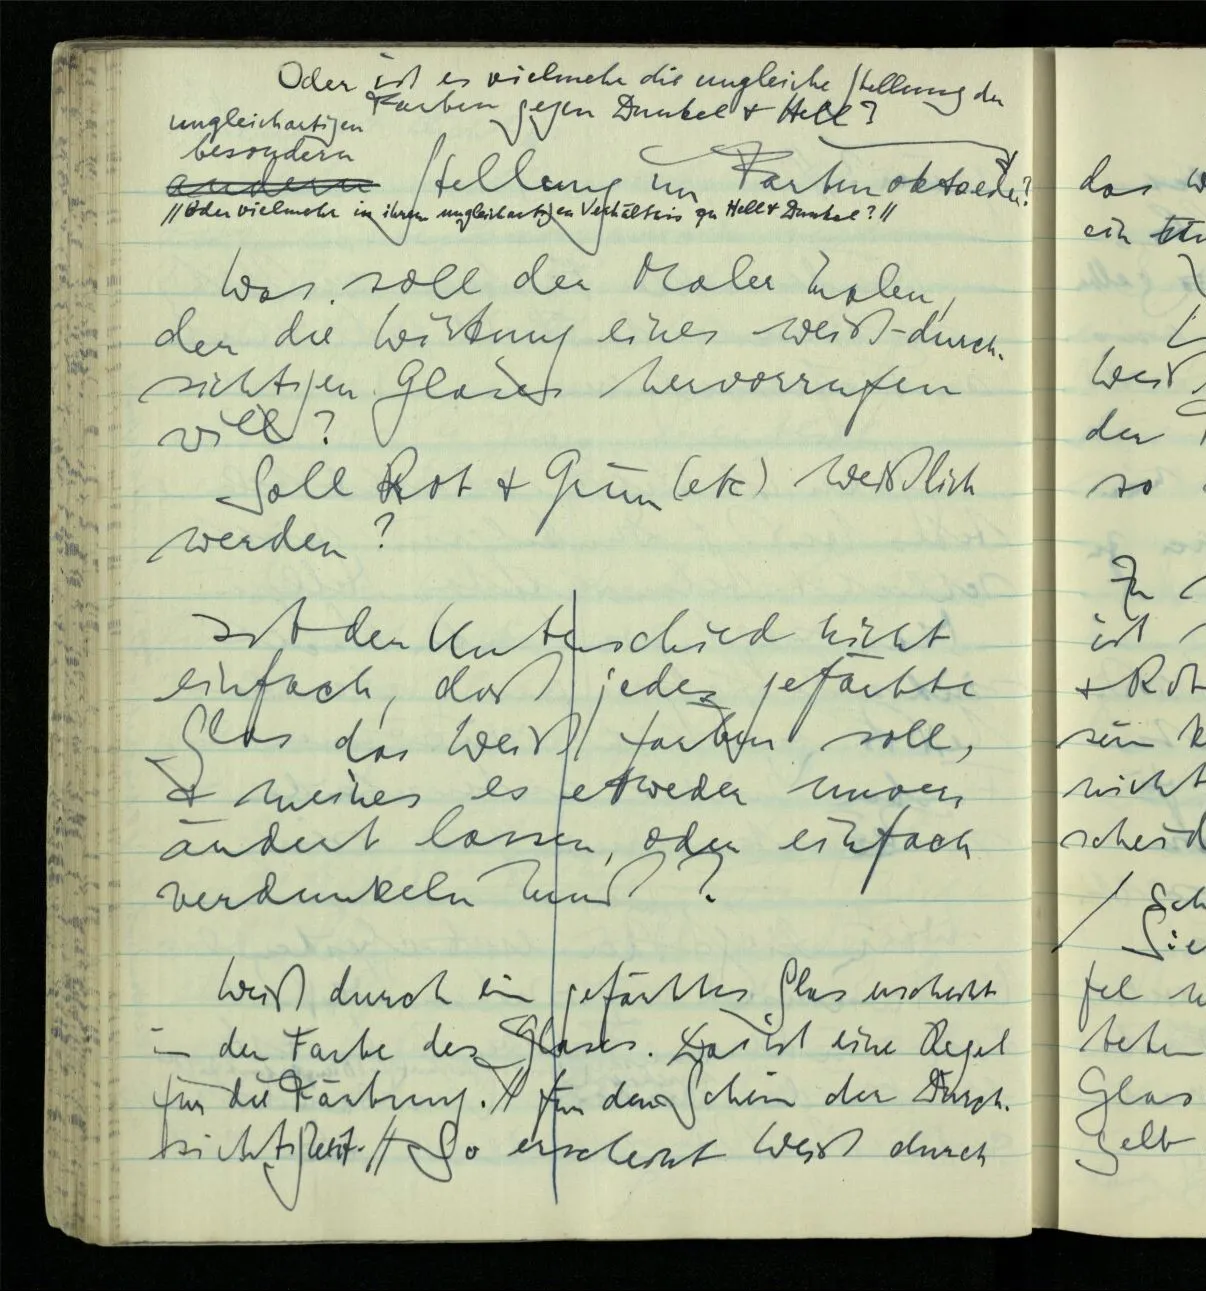 Oder ist es vielmehr die ungleiche Stellung der
Farben gegen Dunkel + Hell?
ungleichartigen
besondern
andern Stellung im Farbenoktaeder?
// Oder vielmehr in ihrem ungleichartigen Verhältnis zu Hell + Dunkel? //
Was soll der Maler malen,
der die Wirkung eines weiß-durch-
sichtigen Glases hervorrufen
will?
Soll Rot + Grün (etc) weißlich
werden?
Ist der Unterschied nicht
einfach, daß jedes gefärbte
Glas das Weiß färben soll,
+ meines es etweder unver
ändert lassen, oder einfach
verdunkeln muß?
Weiß durch ein gefärbtes Glas erscheint
in der Farbe des Glases. Das ist eine Regel
für die Färbung. // für den Schein der Durch-
sichtigkeit. // So erscheint Weiß durch
das
ein
Weiß
der
so
Zu
ist
+ Rot
sein
nicht
scheid
Sch
Sie
fel
beten
Glas
Gelb